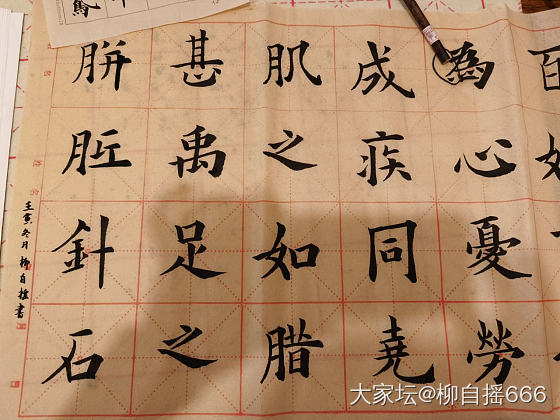 為心憂勞
成疾同堯
肌之如腊
甚禹足之
胼胝針石
壬寅冬月 柳自摇書
大家坛@柳自摇666